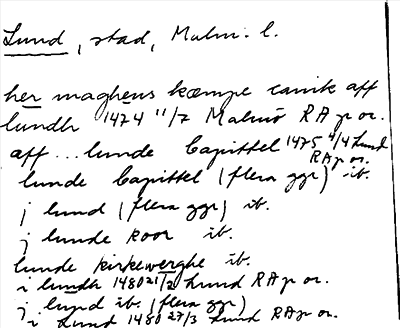 Lund, stad, Malm. l.
her maghens kæmpe canik aff
lundh 1474 11/7 Malmö RAp or.
aff ... lunde Capittel 1475 4/4 Lund
RAp or.
lunde Capittel (flera ggr) ib.
j lund (flera ggr) ib.
j lunde koor ib.
lunde kirkewerghe ib.
i lundh 1480 21/2 Lund RAp or.
j lund ib. (flera ggr)
i Lund 1480 27/3 Lund RAp or.